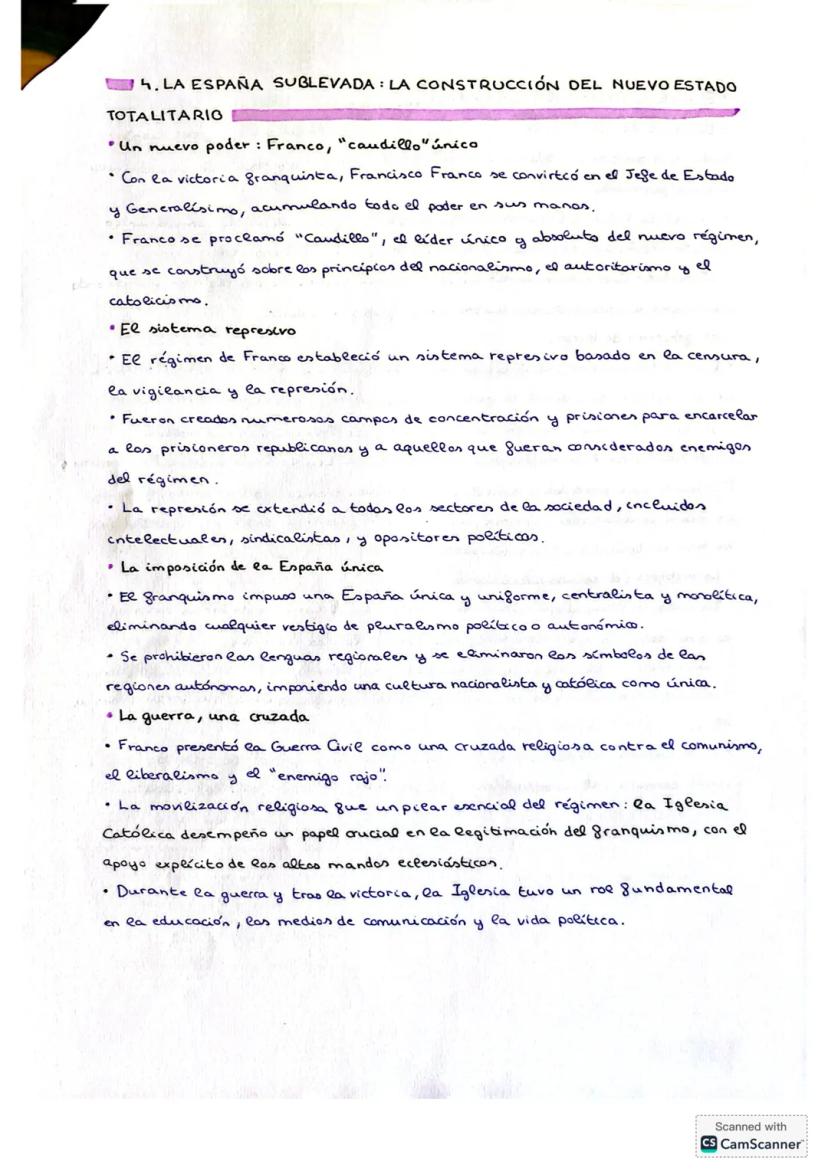 4. LA ESPAÑA SUBLEVADA: LA CONSTRUCCIÓN DEL NUEVO ESTADO
TOTALITARIO
• Un nuevo poder: Franco, "caudillo" único
• Con la victoria franquista, Francisco Franco se convirtió en el Jefe de Estado
y Generalísimo, acumulando todo el poder en sus manos.
• Franco se proclamó "Caudillo", el líder único y absoluto del nuevo régimen,
que se construyó sobre los principios del nacionalismo, el autoritarismo y el
catolicismo.
• El sistema represivo
• El régimen de Franco estableció un sistema represivo basado en la censura,
la vigilancia y la represión.
• Fueron creados numerosos campos de concentración y prisiones para encarcelar
a los prisioneros republicanos y a aquellos que fueran considerados enemigos
del régimen.
• La represión se extendió a todos los sectores de la sociedad, incluidos
intelectuales, sindicalistas, y opositores políticos.
• La imposición de la España única
• El franquismo impuso una España única y uniforme, centralista y monolítica,
eliminando cualquier vestigio de pluralismo político o autonómico.
• Se prohibieron las lenguas regionales y se eliminaron los símbolos de las
regiones autónomas, imponiendo una cultura nacionalista y católica como única.
• La guerra, una cruzada
• Franco presentó la Guerra Civil como una cruzada religiosa contra el comunismo,
el liberalismo y el "enemigo rojo".
• La movilización religiosa fue un pilar esencial del régimen: la Iglesia
Católica desempeño un papel crucial en la legitimación del franquismo, con el
apoyo explícito de los altos mandos eclesiásticos.
• Durante la guerra y tras la victoria, la Iglesia tuvo un rol fundamental
en la educación, los medios de comunicación y la vida política.
Scanned with
CS CamScanner